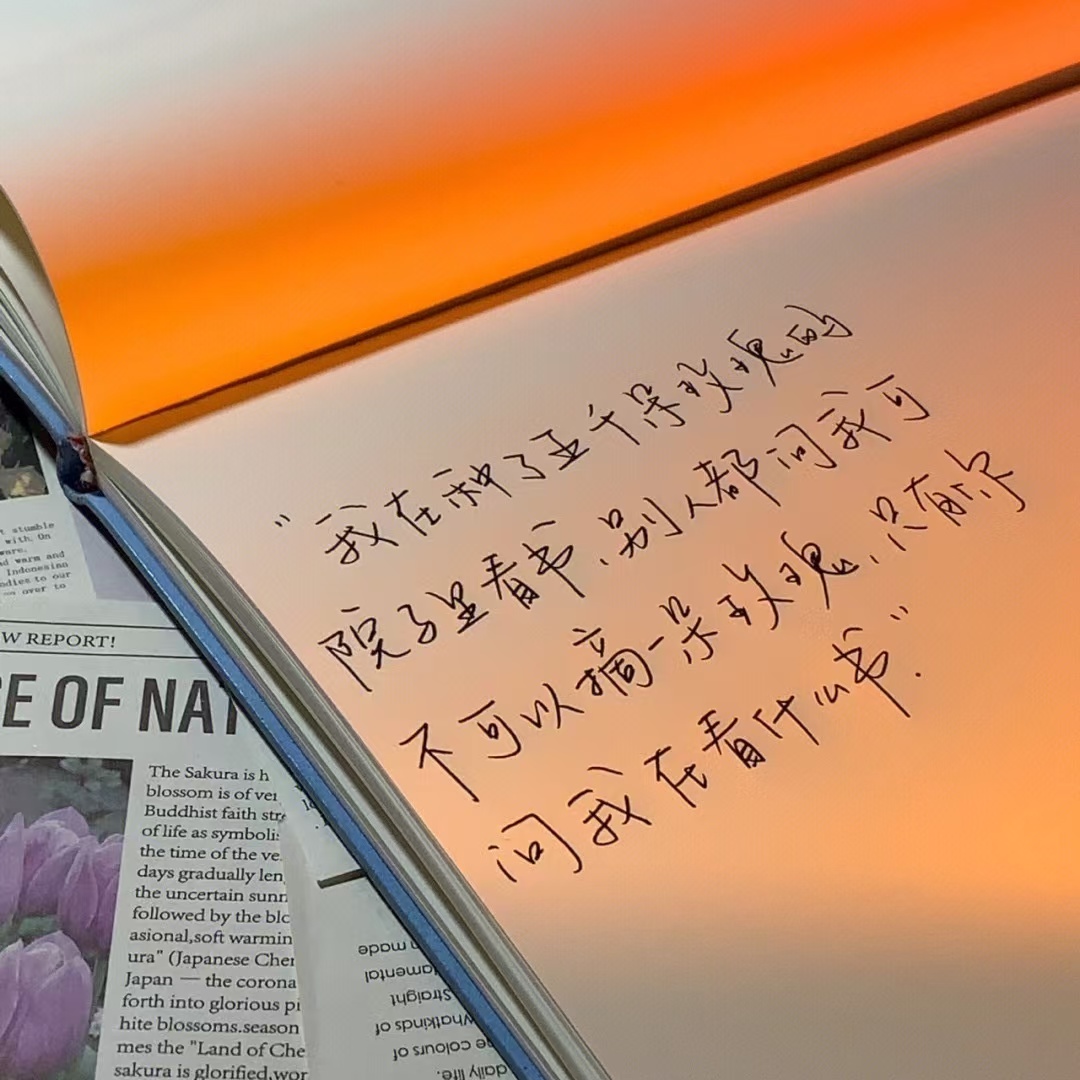 “我在种了五千朵玫瑰的
院子里看书,别人都问我可
不可以摘一朵玫瑰,只有你
问我在看什么书”.
t stumble
with. On
ware.
d warm and
Indonesian
ndies to our
over to
W REPORT!
E OF NAT
The Sakura is h
blossom is of ver
Buddhist faith stre
of life as symbolis
the time of the ve
days gradually len
the uncertain sunn
followed by the blo
asional,soft warmin
ura" (Japanese Cher
Japan — the corona
forth into glorious pi
hite blossoms.season
mes the "Land of Che
sakura is glorified,wor
made
lamental
Straight
Whatkinds of
e colours of
daily life.